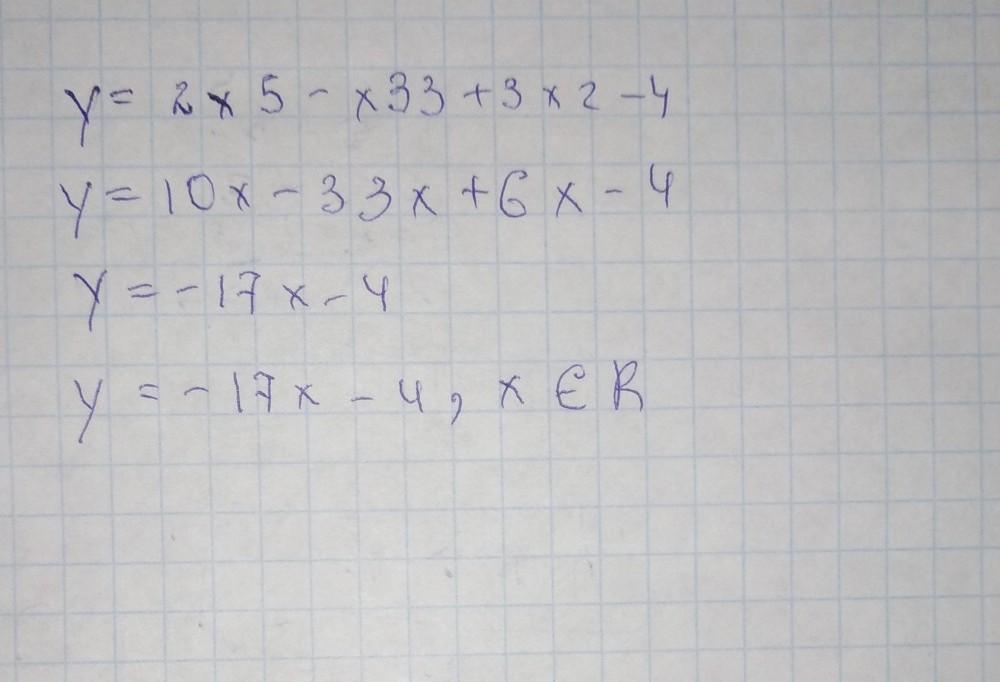 y = 2x5 - x33 + 3x2 - 4
y = 10x - 33x + 6x - 4
y = -17x - 4
y = -17x - 4, x ∈ R